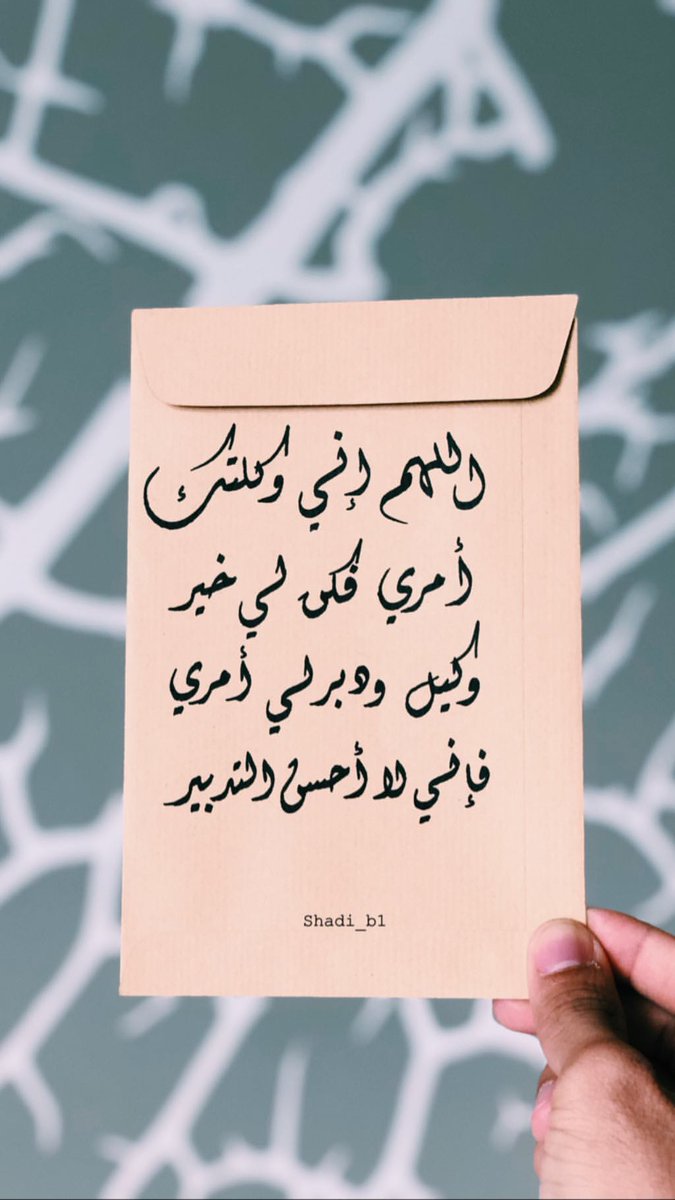 اللهم إني وكلتك
أمري فكن لي خير
وكيل ودبر لي أمري
فإني لا أحسن التدبير
Shadi_b1